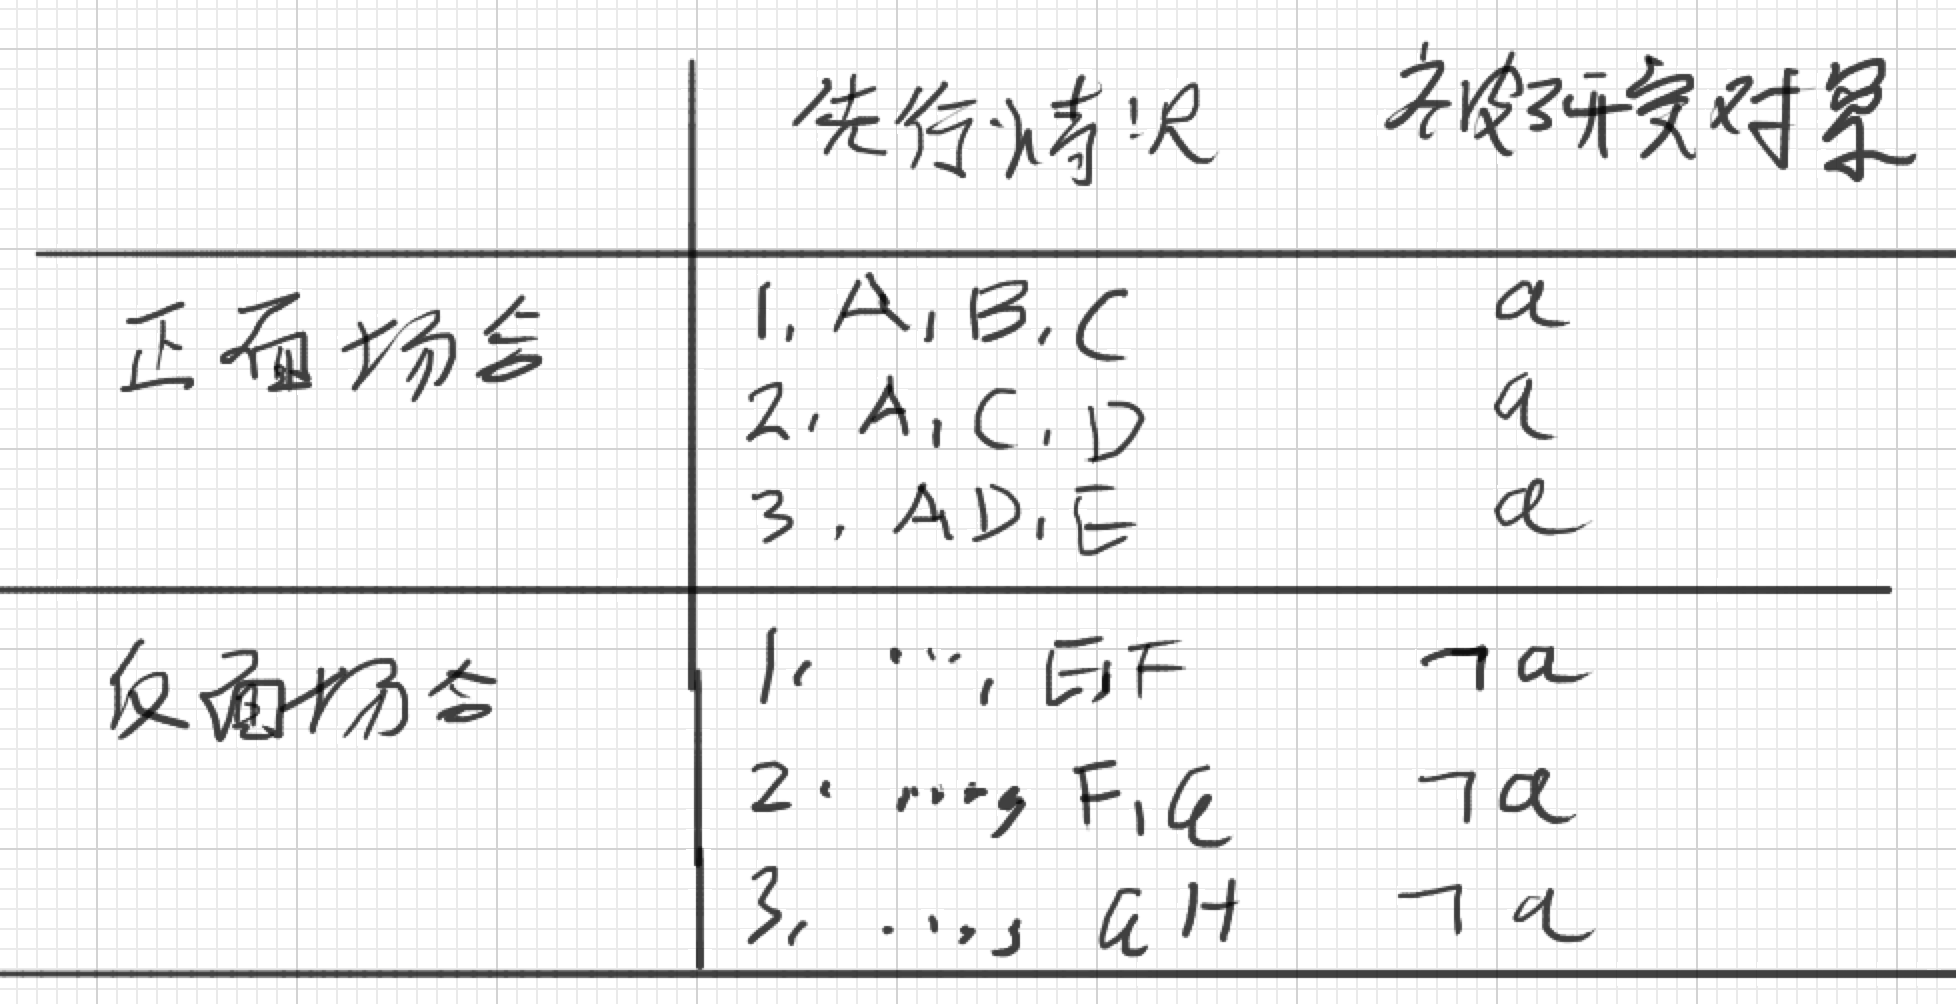 先行情况 各被研究对象
正面场合 1. A, B, C a
2. A, C, D a
3. A D, E a
反面场合 1. ..., E, F ¬a
2. ..., F, G ¬a
3. ..., G H ¬a